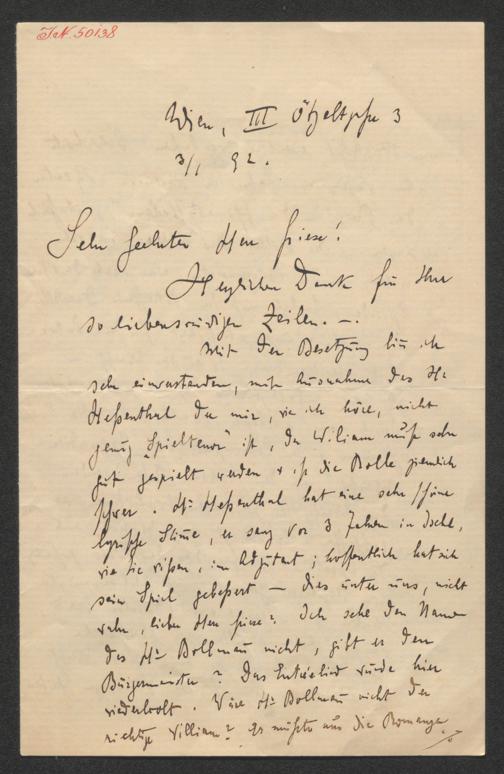 I.N. 50138
Wien, III Ötzeltgasse 3
3/I 92.
Sehr geehrter Herr Friese!
Herzlichen Dank für Ihre
so liebenswürdigen Zeilen. —.
Mit der Besetzung bin ich
sehr einverstanden, mit Ausnahme des Hr.
Heßenthal der mir, wie ich höre, nicht
genug „Spieltenor" ist, der William muß sehr
gut gespielt werden u. ist die Rolle ziemlich
schwer. Hr. Heßenthal hat eine sehr schöne
lyrische Stimme, er sang vor 3 Jahren in Ischl,
wie Sie wißen, im Adjutant; hoffentlich hat sich
sein Spiel gebeßert — dies unter uns, nicht
wahr, lieber Herr Friese? Ich sehe den Namen
des Hr. Bollmann nicht, gibt er den
Bürgermeister? Das Entréelied wurde hier
wiederholt. Wäre Hr. Bollmann nicht der
richtige William? Es müßte nur die Romanze